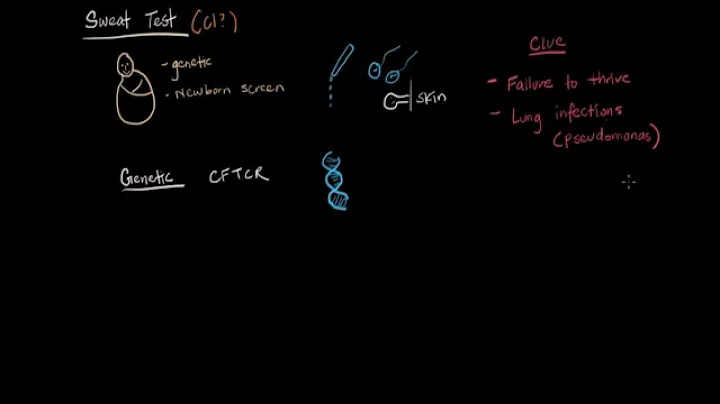 Sweat Test (Cl?)
- genetic
- Newborn screen
SKIN
Genetic CFTCR
Clue
- Failure to thrive
- Lung infections
(pseudomonas)